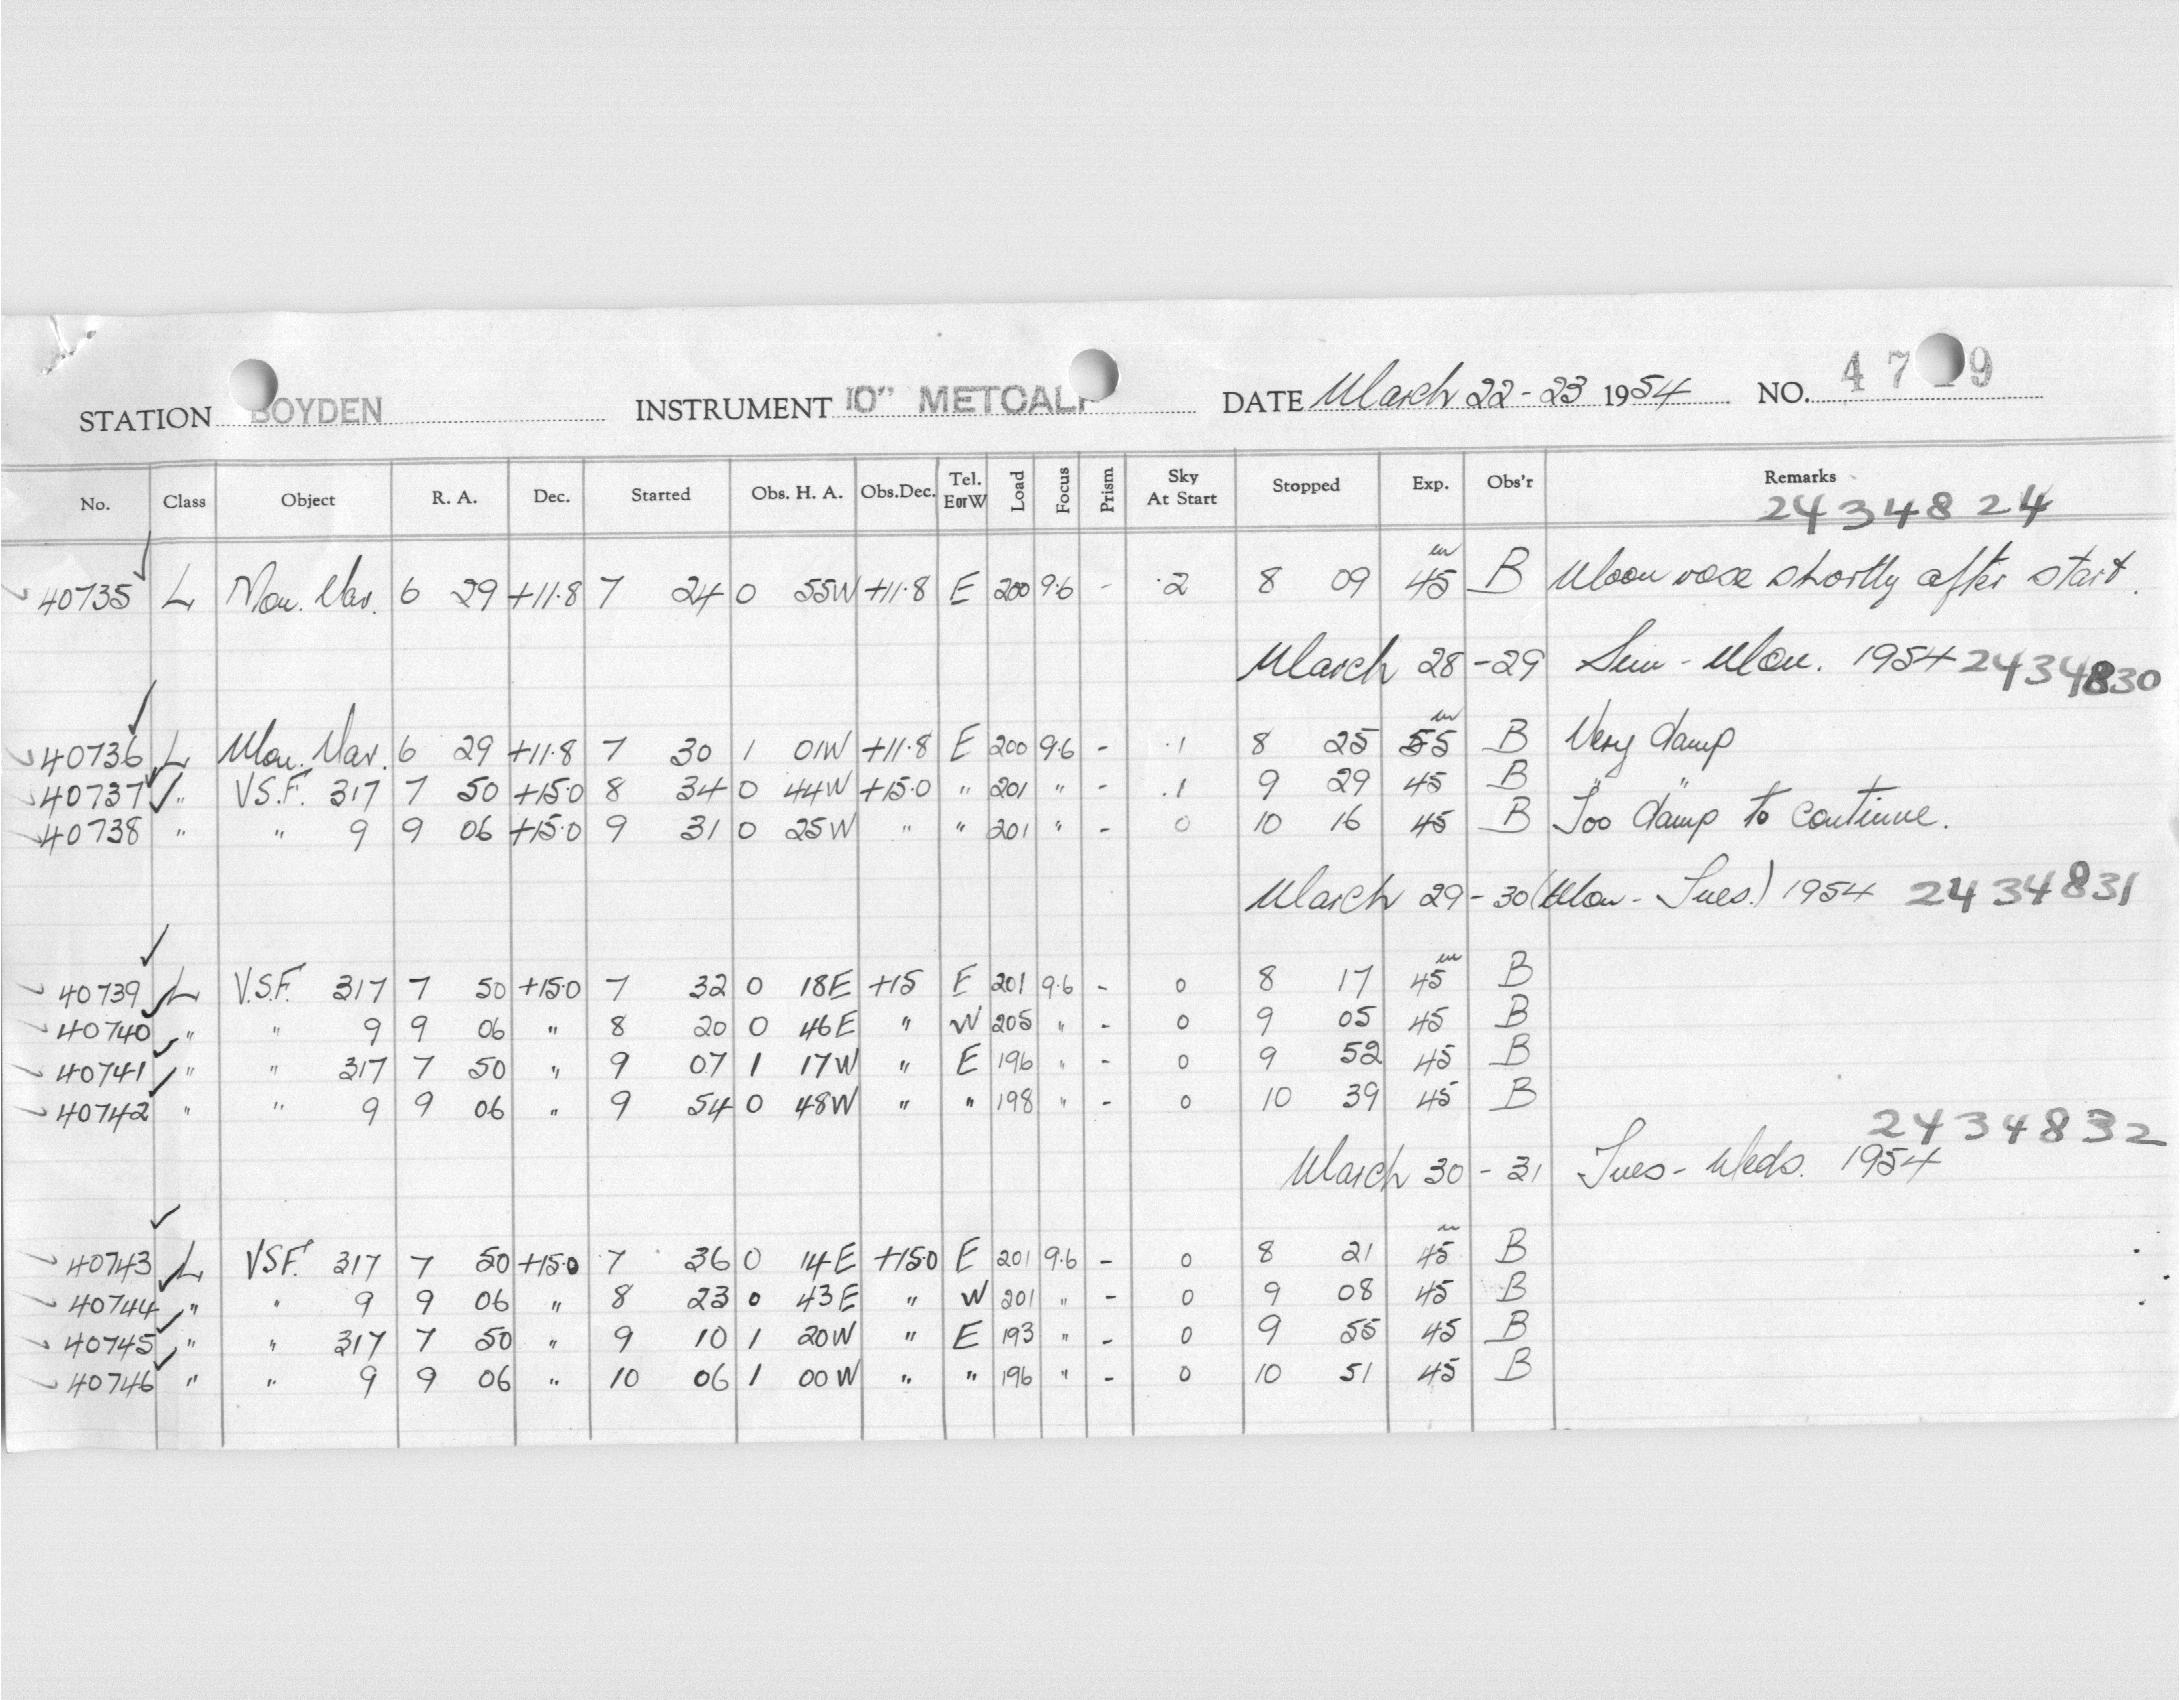 STATION BOYDEN INSTRUMENT 10" METCALF DATE March 22-23 1954 NO. 47 9
No. Class Object R. A. Dec. Started Obs. H. A. Obs.Dec. Tel. E or W Load Focus Prism Sky At Start Stopped Exp. Obs'r Remarks
2434824
40735 L Mon. Var. 6 29 +11.8 7 24 0 55W +11.8 E 200 9.6 - .2 8 09 45m B Moon rose shortly after start.
March 28-29 Sun-Mon. 1954 2434830
40736 L Mon. Var. 6 29 +11.8 7 30 1 01W +11.8 E 200 9.6 - .1 8 25 55m B Very damp
40737 " V.S.F. 317 7 50 +15.0 8 34 0 44W +15.0 " 201 " - .1 9 29 45 B " "
40738 " " 9 9 06 +15.0 9 31 0 25W " " 201 " - 0 10 16 45 B Too damp to continue.
March 29-30 (Mon-Tues.) 1954 2434831
40739 L V.S.F. 317 7 50 +15.0 7 32 0 18E +15 E 201 9.6 - 0 8 17 45m B
40740 " " 9 9 06 " 8 20 0 46E " W 205 " - 0 9 05 45 B
40741 " " 317 7 50 " 9 07 1 17W " E 196 " - 0 9 52 45 B
40742 " " 9 9 06 " 9 54 0 48W " " 198 " - 0 10 39 45 B
2434832
March 30-31 Tues-Weds. 1954
40743 L VSF. 317 7 50 +15.0 7 36 0 14E +15.0 E 201 9.6 - 0 8 21 45m B
40744 " " 9 9 06 " 8 23 0 43E " W 201 " - 0 9 08 45 B
40745 " " 317 7 50 " 9 10 1 20W " E 193 " - 0 9 55 45 B
40746 " " 9 9 06 " 10 06 1 00W " " 196 " - 0 10 51 45 B